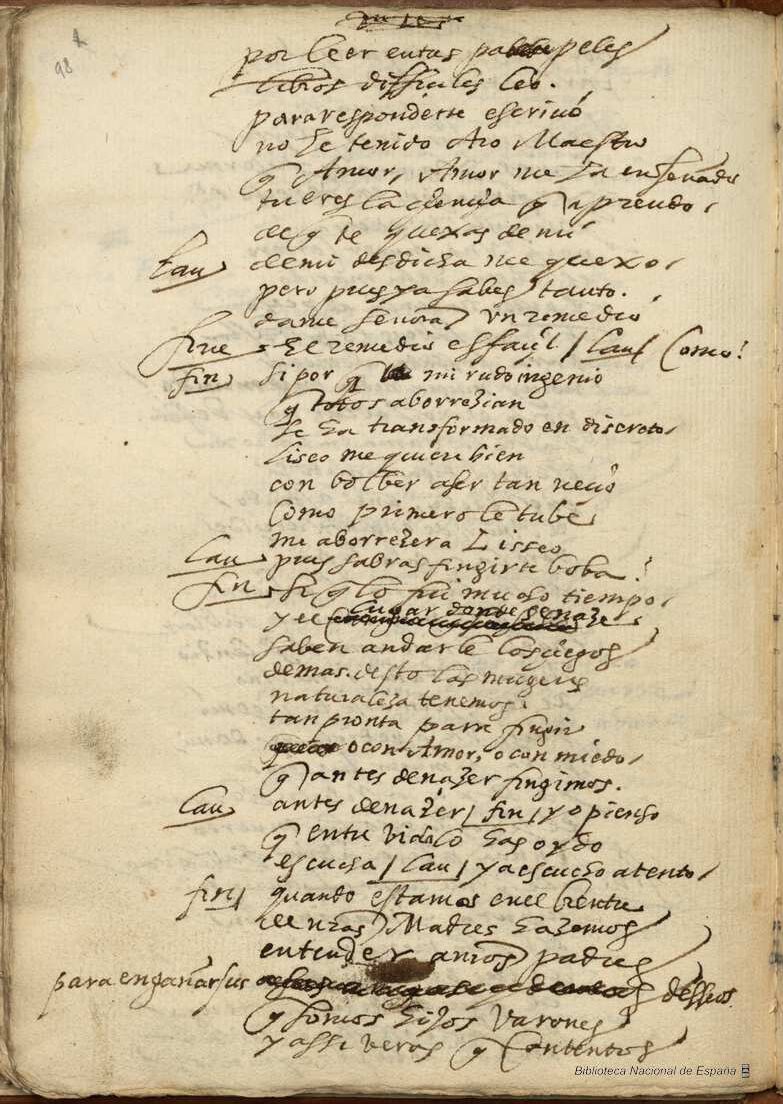 98
por leer en tus papeles
libros difficiles leo.
para responderte escrivo
no he tenido otro Maestro
q Amor, Amor me ha enseñado
tu eres la ciençia q aprendo.
de q te quexas de mi
Lau de mi desdicha me quexo.
pero pues ya sabes tanto.
dame señora un remedio
fine El remedio es façil / Lau / Como?
fin si por q mi rudo ingenio
q todos aborrezian
se ha transformado en discreto
Liseo me quiere bien
con bolber a ser tan neçio
como primero le tube
me aborrezera Lisseo
Lau pues sabras fingirte boba?
fin si q lo fui mucho tiempo.
lugar donde se naze
y el
saben andarle los çiegos
demas. desto las mugeres
naturaleza tenemos.
tan pronta para fingir
o con Amor, o con miedo.
q antes de nazer fingimos.
Lau antes de nazer / fin / yo pienso
q en tu vida lo has oydo
escucha / Lau / ya escucho atento.
fin quando estamos en el bientre
de nras Madres hazemos
entender a nros padres
para engañar sus desseos
q somos hijos varones
y assi veras q contentos
Biblioteca Nacional de España